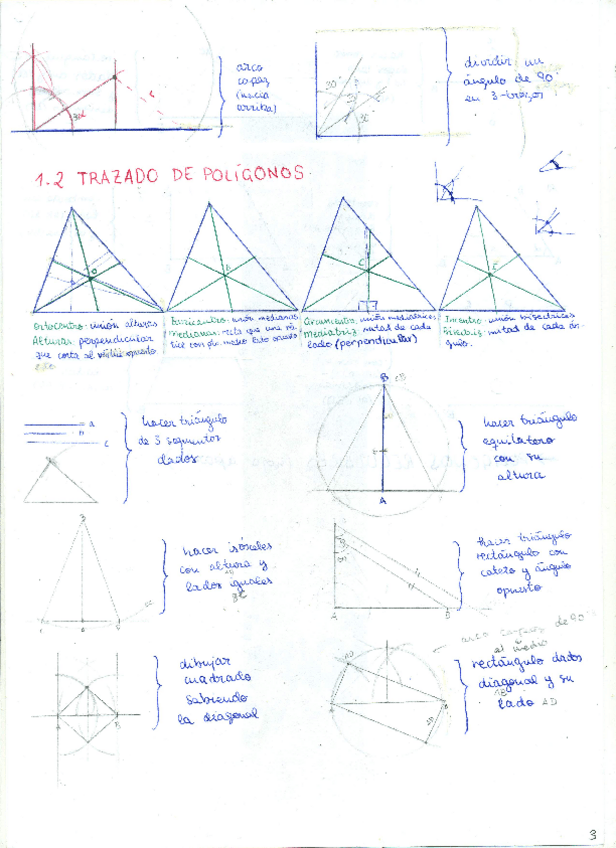 arco
capaz
(hacia
arriba)
30°
dividir un
ángulo de 90°
en 3 trozos
1.2 TRAZADO DE POLÍGONOS.
Ortocentro: unión alturas
Alturas: perpendicular
que corta al vértice opuesto
Baricentro: unión medianas
Medianas: recta que une vér
tice con pto medio lado opuesto
Circuncentro: unión mediatrices
Mediatriz: mitad de cada
lado (perpendicular)
Incentro: unión bisectrices
Bisectriz: mitad de cada án-
gulo.
A
B
C
hacer triángulo
de 3 segmentos
dados
B
A
hacer triángulo
equilatero
con su
altura
hacer isósceles
con altura y
lados iguales
A
B
hacer triángulo
rectángulo con
cateto y ángulo
opuesto
dibujar
cuadrado
sabiendo
la diagonal
arco capaz de 90°
rectángulo dados
diagonal y su
lado AD
3